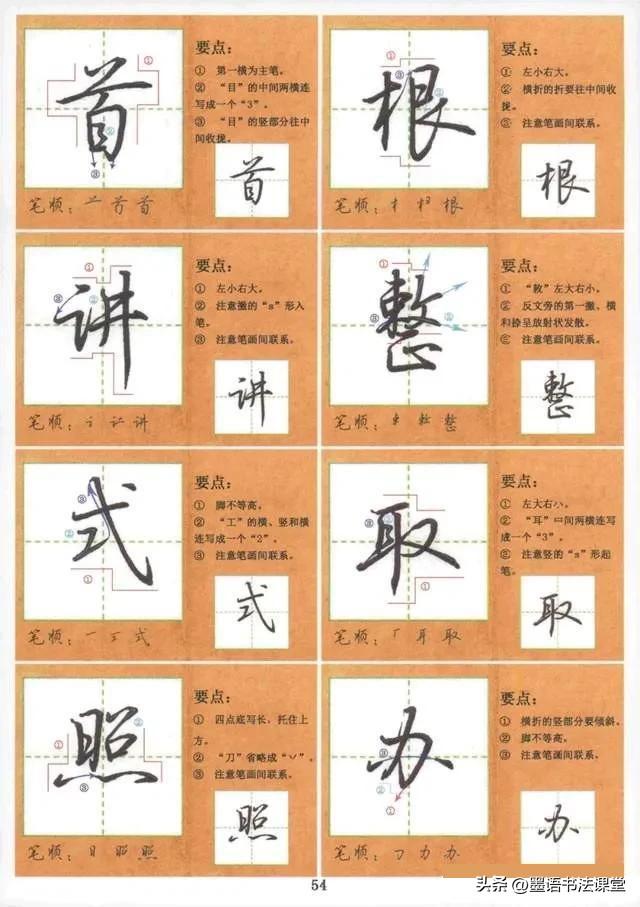 首
要点：
① 第一横为主笔。
② “目”的中间两横连
写成一个“3”。
③ “目”的竖部分往中
间收拢。
首
笔顺：
首
①
②
③
根
要点：
① 左小右大。
② 横折的折要往中间收
拢。
③ 注意笔画间联系。
根
笔顺：
根
①
②
③
讲
要点：
① 左小右大。
② 注意撇的“s”形入
笔。
③ 注意笔画间联系。
讲
笔顺：
讲
①
②
③
整
要点：
① “敕”左大右小。
② 反文旁的第一撇、横
和捺呈放射状发散。
③ 注意笔画间联系。
整
笔顺：
敕 整
①
②
③
式
要点：
① 脚不等高。
② “工”的横、竖和横
连写成一个“2”。
③ 注意笔画间联系。
式
笔顺：一 三 式
①
②
③
取
要点：
① 左大右小。
② “耳”中间两横连写
成一个“3”。
③ 注意竖的“s”形起
笔。
取
笔顺：
耳 取
①
②
③
照
要点：
① 四点底写长，托住上
方。
② “刀”省略成“丷”。
③ 注意笔画间联系。
照
笔顺：日 昭 照
①
②
③
办
要点：
① 横折的竖部分要倾斜。
② 脚不等高。
③ 注意笔画间联系。
办
笔顺：㇆ 力 办
①
②
③
54
头条 @墨语书法课堂